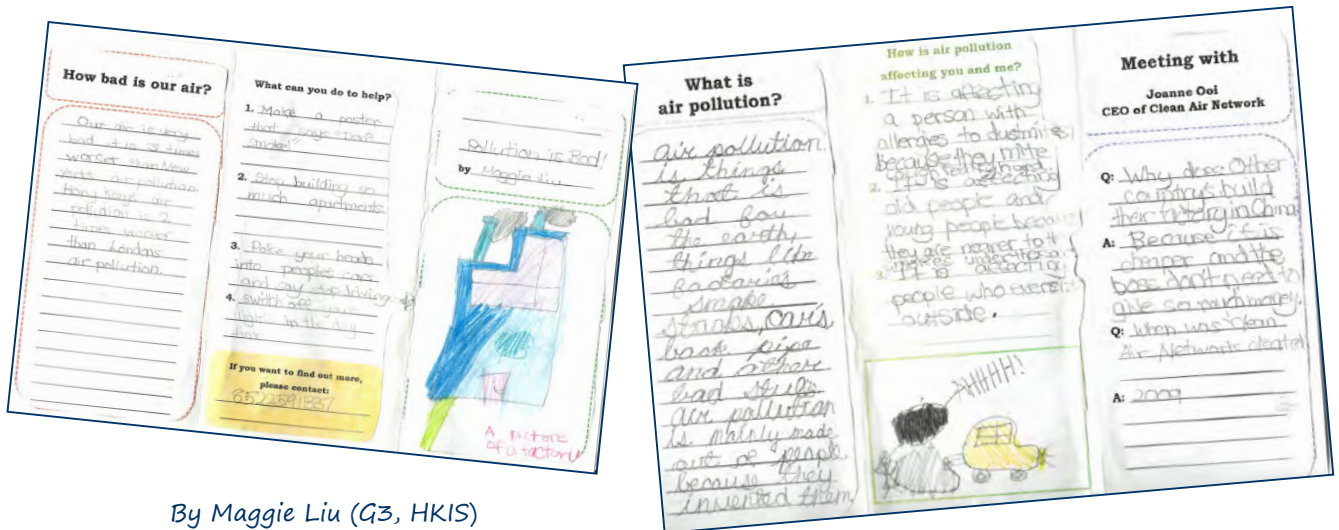 How bad is our air?
Our air is very
bad it is 3 times
worser than New
york's air pollution
Hong Kongs air
pollution is 2
times worser
than Londons
air pollution.
What can you do to help?
1. Make a poster
that says "don't
smoke!"
2. Stop building so
much apartments.
3. Poke your heads
into peoples cars
and say stop driving
4. switch off your
light in the day
time
If you want to find out more,
please contact:
Pollution is Bad!
by Maggie Liu
A picture
of a factory
What is
air pollution?
air pollution
is things
that is
bad for
the earth,
things like
factaries
smoke
stacks, cars,
back pipe
and other
bad stuffs
air pollution
is mainly made
out of people
because they
invented them
How is air pollution
affecting you and me?
1. It is affecting
a person with
allergies to dustmites
because they mite
2. It is affecting
old people and
young people because
they are nearer to it
3. It is affecting
people who
outside.
AHHHH!
Meeting with
Joanne Ooi
CEO of Clean Air Network
Q: Why does Other
countrys build
their factory in China
A: Because it is
cheaper and the
boss don't need to
give so much money.
Q: When was Clean
Air Networks created
A: 2009
By Maggie Liu (G3, HKIS)